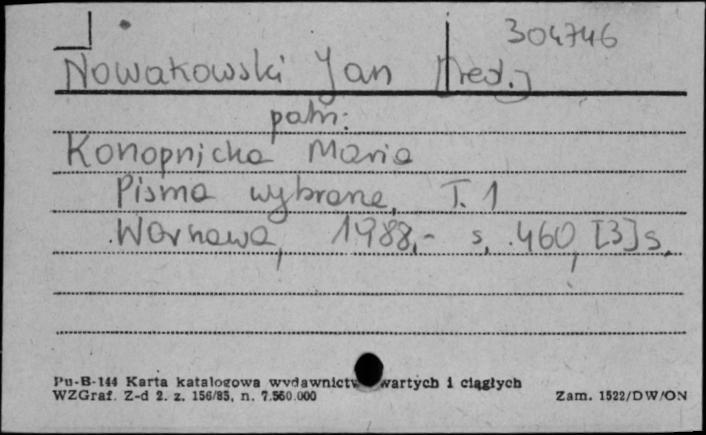 304746
Nowakowski Jan [red.]
patrz:
Konopnicka Maria
Pisma wybrane, T. 1
Warszawa, 1988,- s. 460, [3] s.
Pu-B-144 Karta katalogowa wydawnictw wartych i ciągłych
WZGraf. Z-d 2. z. 156/85, n. 7.550.000
Zam. 1522/DW/ON